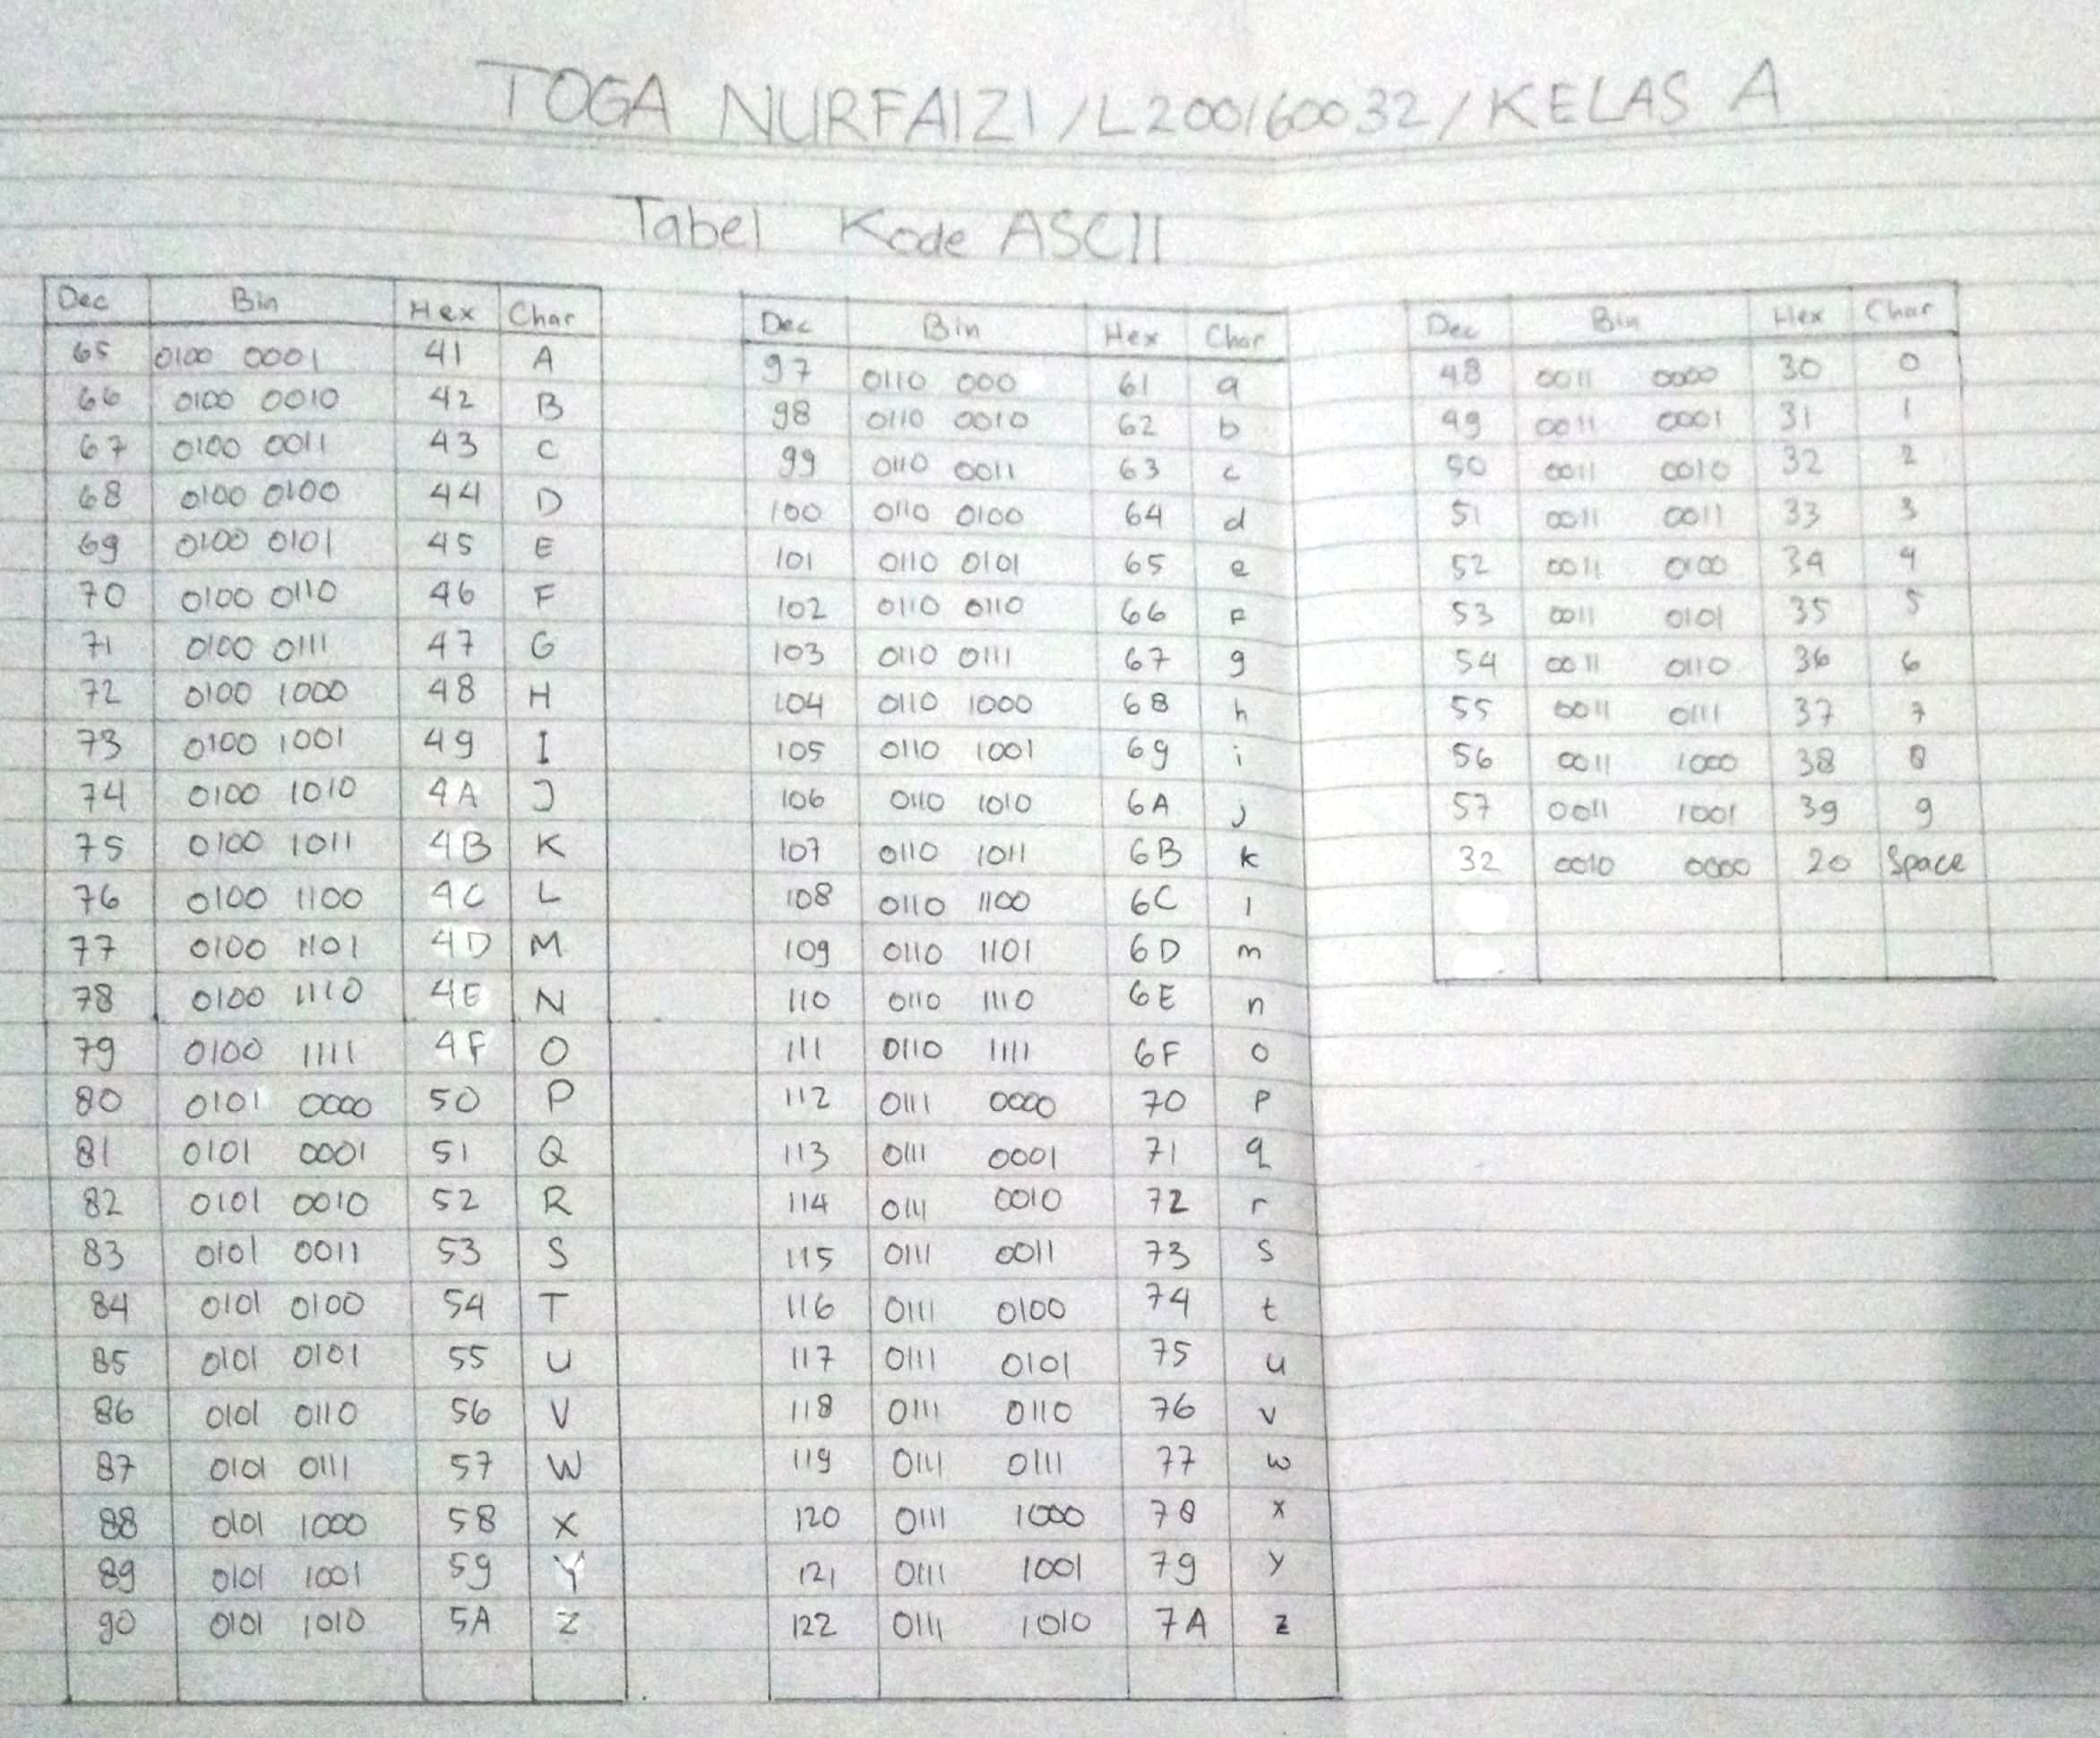 TOGA NURFAIZI / L200160032 / KELAS A
Tabel Kode ASCII
Dec Bin Hex Char
65 0100 0001 41 A
66 0100 0010 42 B
67 0100 0011 43 C
68 0100 0100 44 D
69 0100 0101 45 E
70 0100 0110 46 F
71 0100 0111 47 G
72 0100 1000 48 H
73 0100 1001 49 I
74 0100 1010 4A J
75 0100 1011 4B K
76 0100 1100 4C L
77 0100 1101 4D M
78 0100 1110 4E N
79 0100 1111 4F O
80 0101 0000 50 P
81 0101 0001 51 Q
82 0101 0010 52 R
83 0101 0011 53 S
84 0101 0100 54 T
85 0101 0101 55 U
86 0101 0110 56 V
87 0101 0111 57 W
88 0101 1000 58 X
89 0101 1001 59 Y
90 0101 1010 5A Z
Dec Bin Hex Char
97 0110 000 61 a
98 0110 0010 62 b
99 0110 0011 63 c
100 0110 0100 64 d
101 0110 0101 65 e
102 0110 0110 66 F
103 0110 0111 67 g
104 0110 1000 68 h
105 0110 1001 69 i
106 0110 1010 6A j
107 0110 1011 6B k
108 0110 1100 6C l
109 0110 1101 6D m
110 0110 1110 6E n
111 0110 1111 6F o
112 0111 0000 70 p
113 0111 0001 71 q
114 0111 0010 72 r
115 0111 0011 73 s
116 0111 0100 74 t
117 0111 0101 75 u
118 0111 0110 76 v
119 0111 0111 77 w
120 0111 1000 78 x
121 0111 1001 79 y
122 0111 1010 7A z
Dec Bin Hex Char
48 0011 0000 30 0
49 0011 0001 31 1
50 0011 0010 32 2
51 0011 0011 33 3
52 0011 0100 34 4
53 0011 0101 35 5
54 0011 0110 36 6
55 0011 0111 37 7
56 0011 1000 38 8
57 0011 1001 39 9
32 0010 0000 20 Space